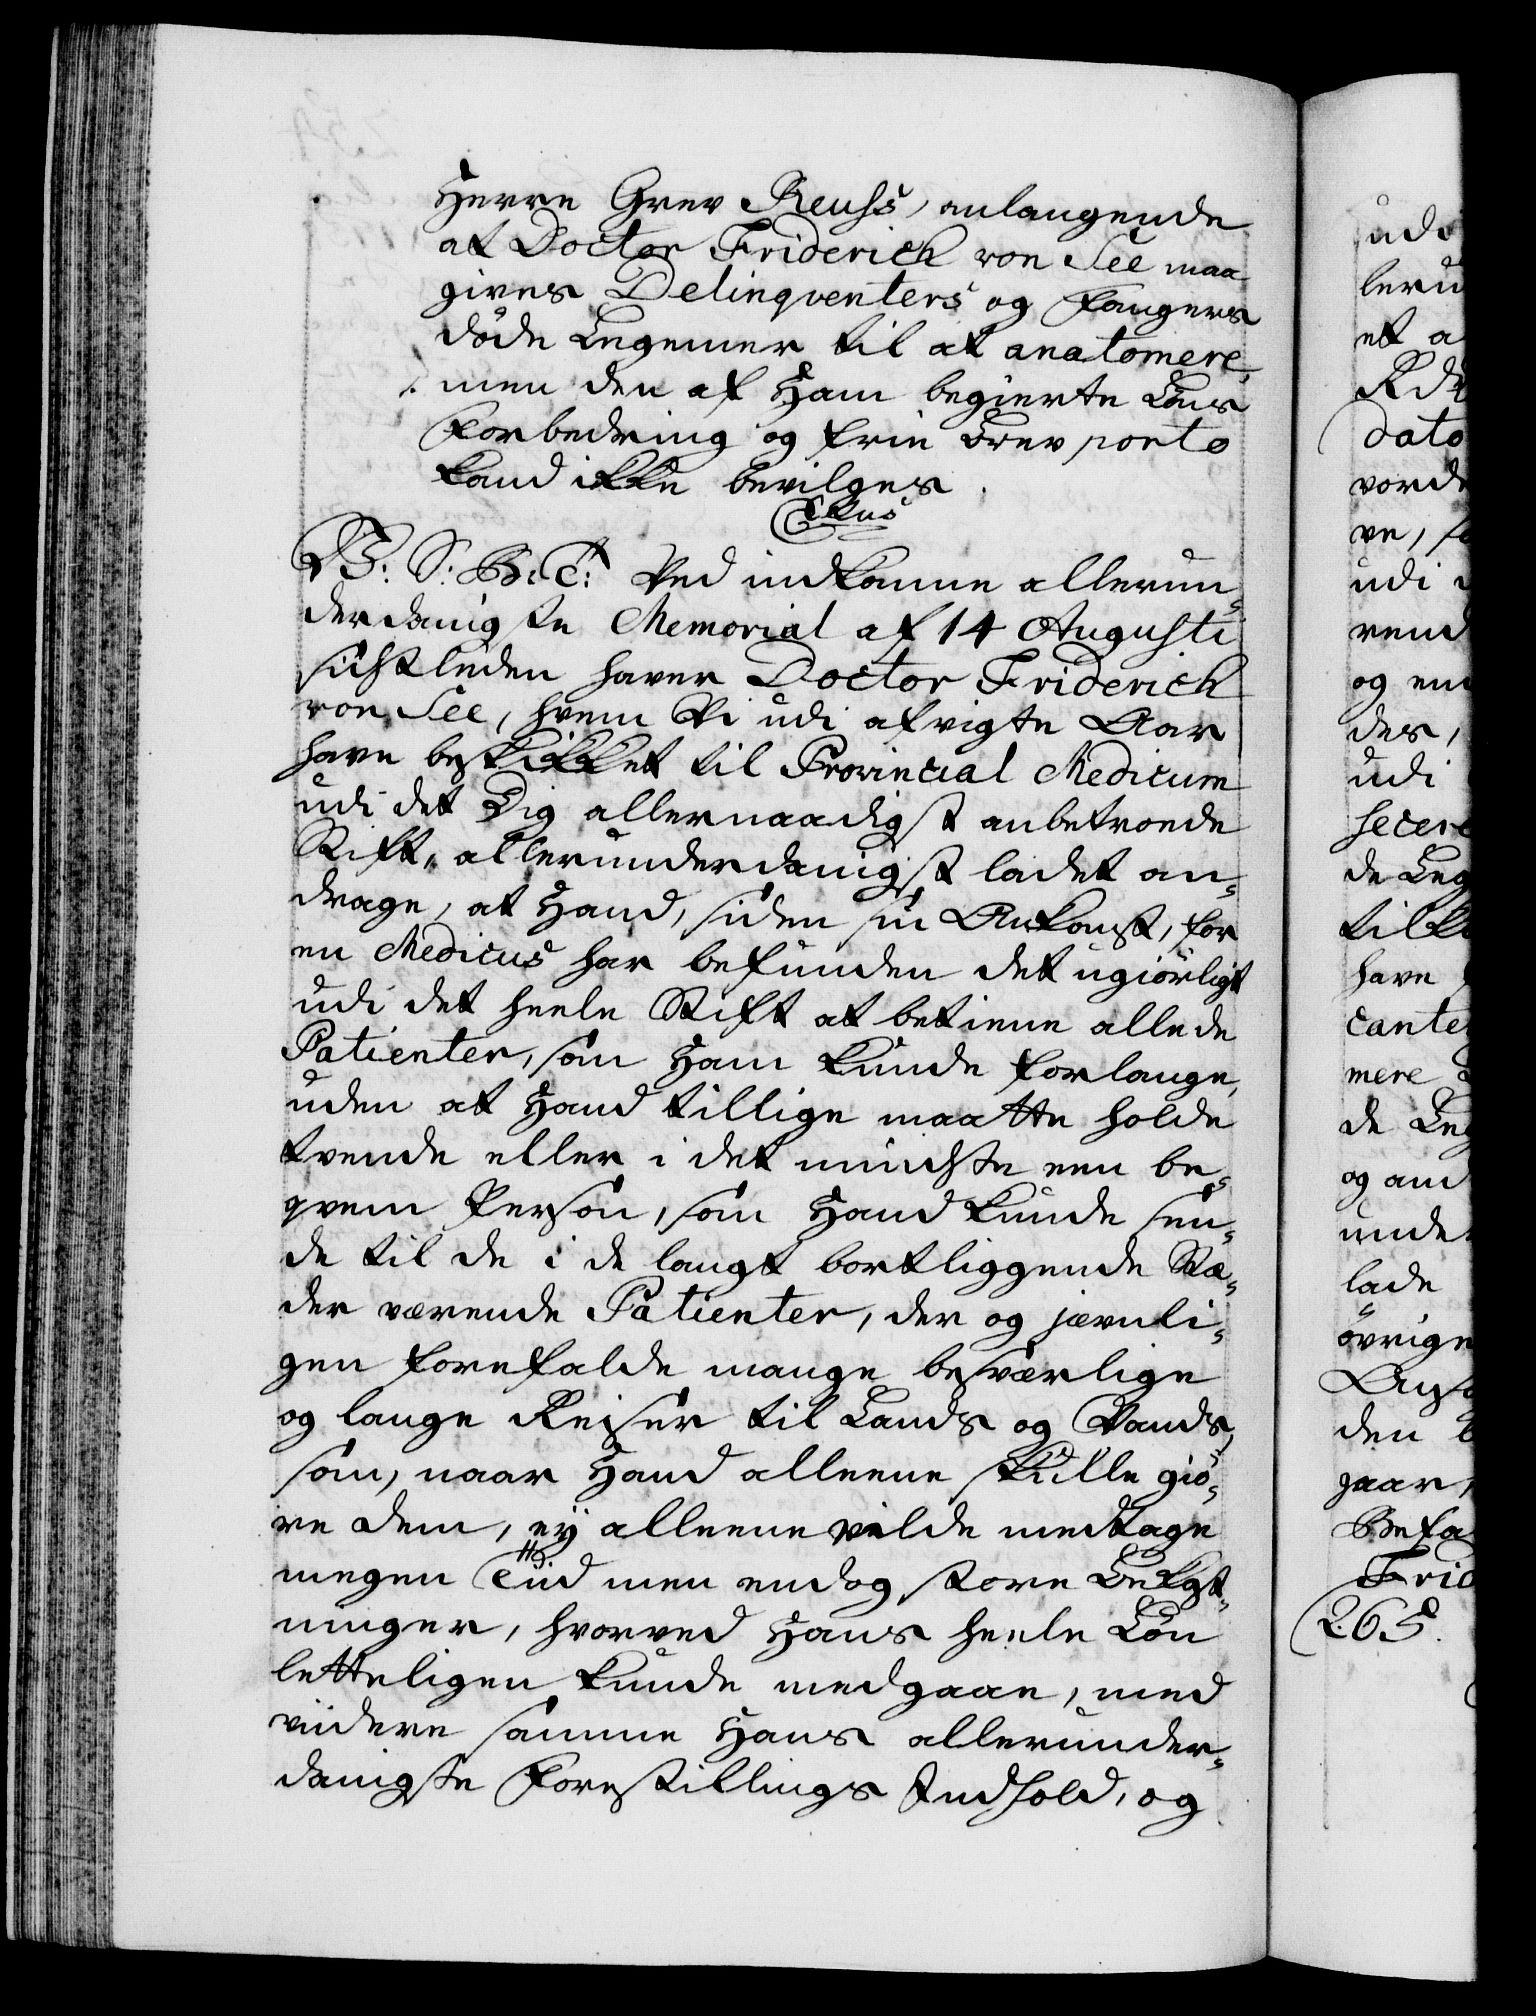 Herre Grev Reuss, anlangende
at Doctor Friderich von See maa
gives Delinqventers og Fangers
döde Legemer til at anatomere,
men den af Ham begierte Löns
Forbedring og frie Brev porto
kand ikke bevilges.
C Rus
V: S: G: T: Ved indkomne allerun-
derdanigste Memorial af 14 Augusti
sidstleden haver Doctor Friderich
von See, hvem Vi udi afvigte Aar
have beskikket til Provincial Medicum
udi det Dig allernaadigst anbetroede
Stift, allerunderdanigst ladet an-
drage, at Hand, siden sin Ankomst, for
en Medicus har befunden det ugiörligt
udi det heele Stift at betiene alle de
Patienter, som Ham kunde forlange,
uden at Hand tillige maatte holde
tvende eller i det mindste een be-
qvem Person, som Hand kunde sen-
de til de i de langt bortliggende Stæ-
der værende Patienter, der og jævnli-
gen forefalde mange besværlige
og lange Reiser til Lands og Vands,
som, naar Hand alleene skulle giö-
re dem, ey alleene vilde medtage
megen Tiid men endog store Bekost-
ninger, hvorved Hans heele Lön
letteligen kunde medgaae, med
videre samme Hans allerunder-
danigste Forestillings Indhold, og
udi
et a
dato
vorde
ve, s
udi
og en
des,
udi
de Leg
have
cante
mere
de Leg
og and
unde
lade
övrige
den
gaar,
Befa
Frid
265.